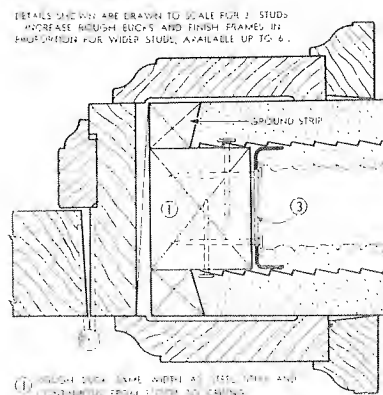 DETAILS SHOWN ARE DRAWN TO SCALE FOR 2" STUDS
INCREASE ROUGH BUCKS AND FINISH FRAMES IN
PROPORTION FOR WIDER STUDS, AVAILABLE UP TO 6".
GROUND STRIP
①
③
① ROUGH BUCK SAME WIDTH AS STEEL STUD AND
CONTINUOUS FROM FLOOR TO CEILING